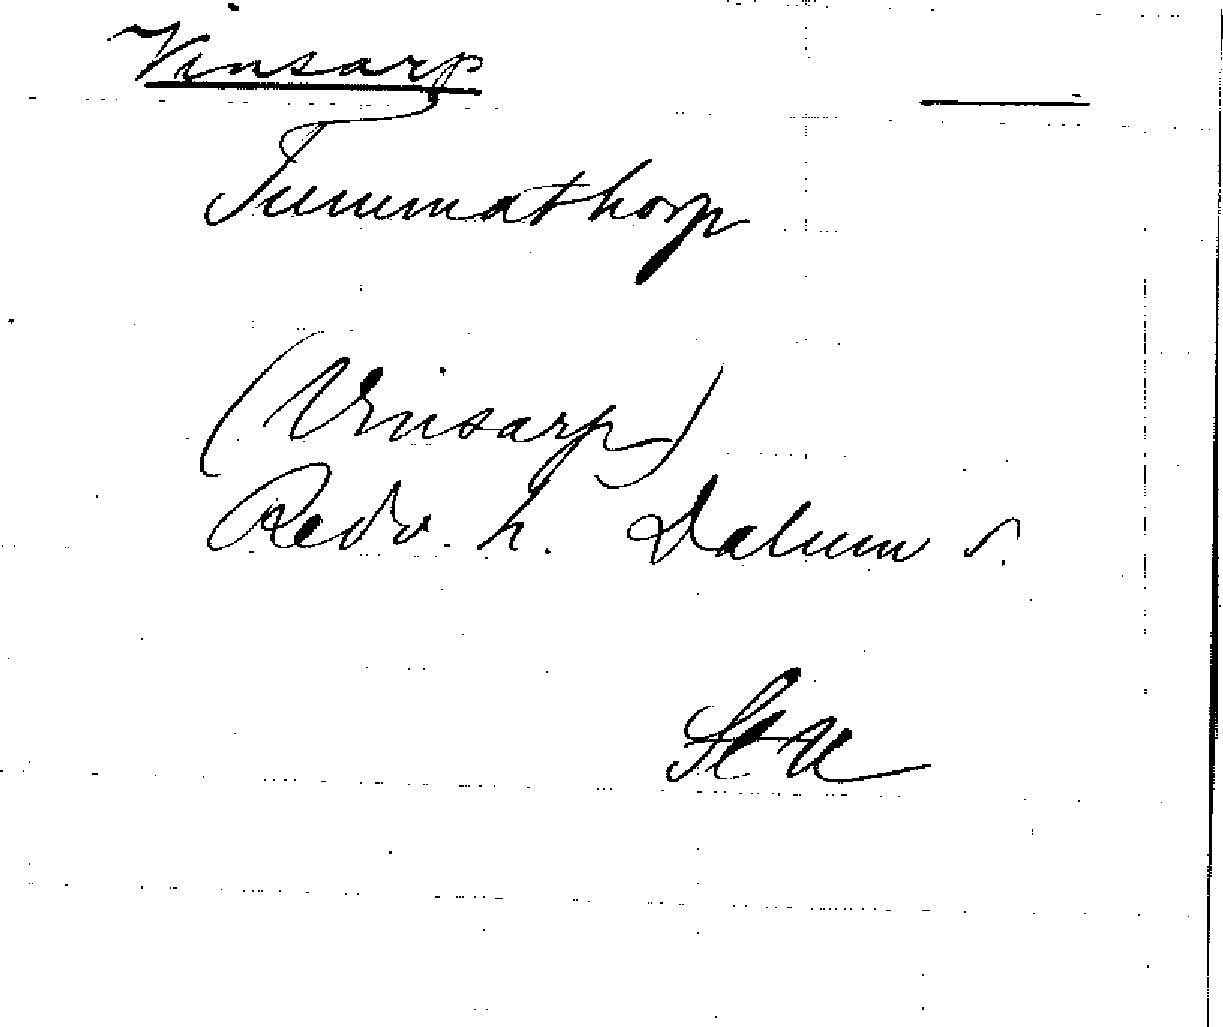 Vinsarp
Tummathorp
(Vinsarp)
Redv. h. Dalum s.